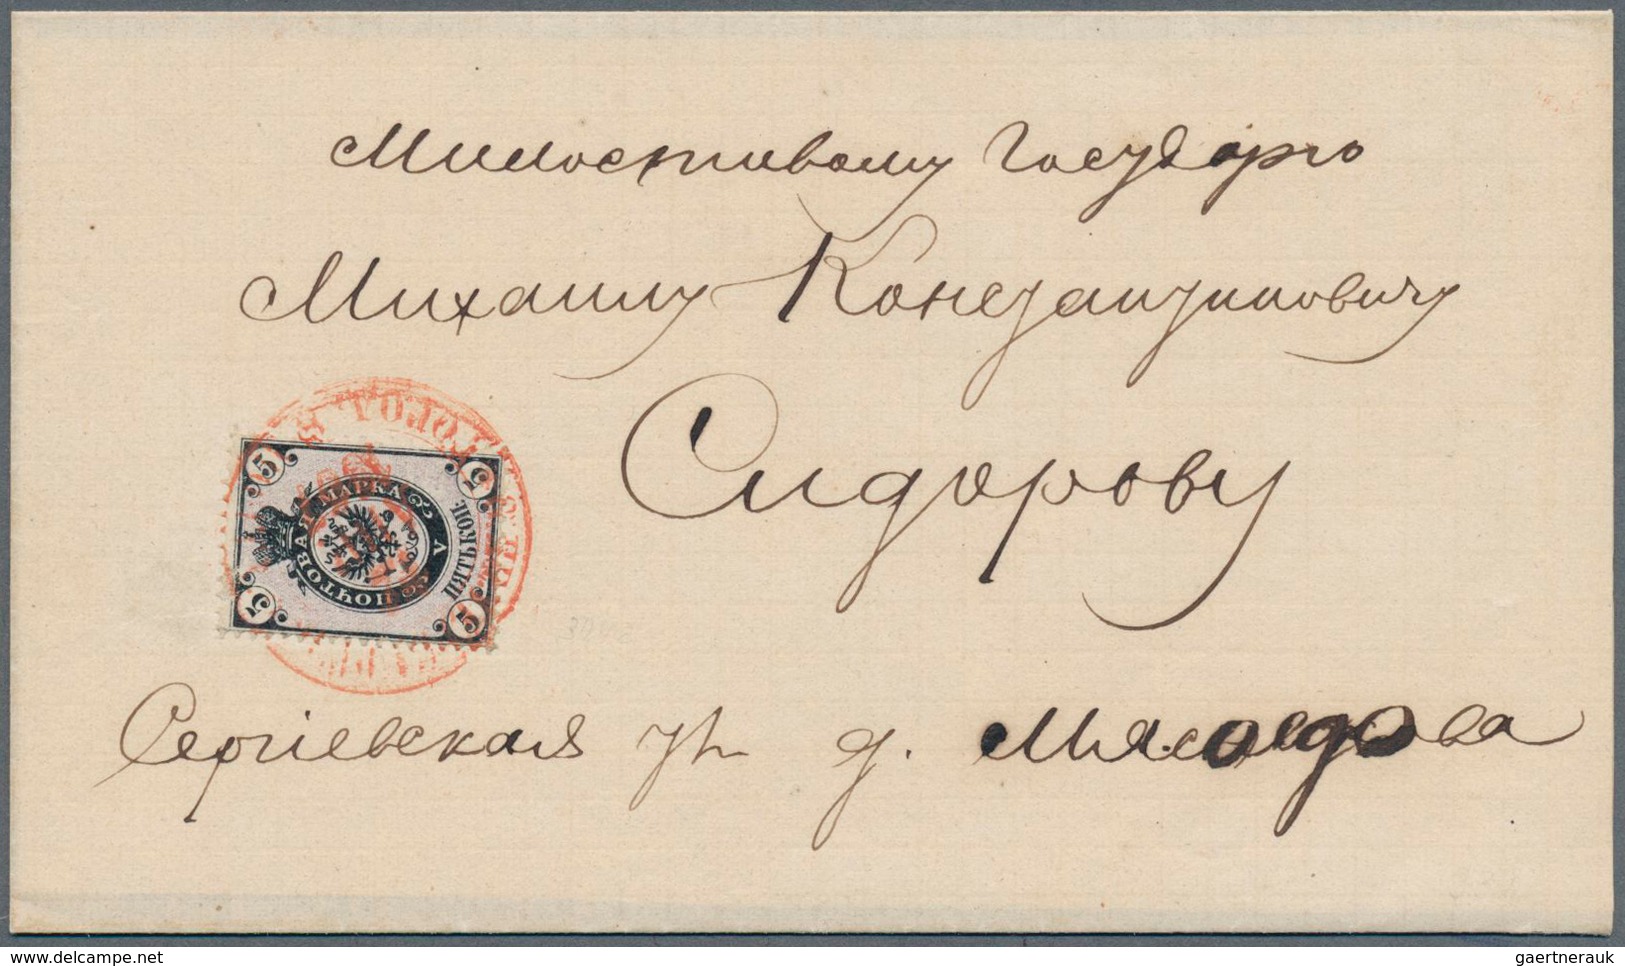 Милостивому Государю
Михаилу Константиновичу
Сидорову
5 5
ПОЧТОВАЯ МАРКА
ПЯТЬ КОП.
5 5
Сергіевская ул д. Мясоедова
delcampe.net
gaertnerauk